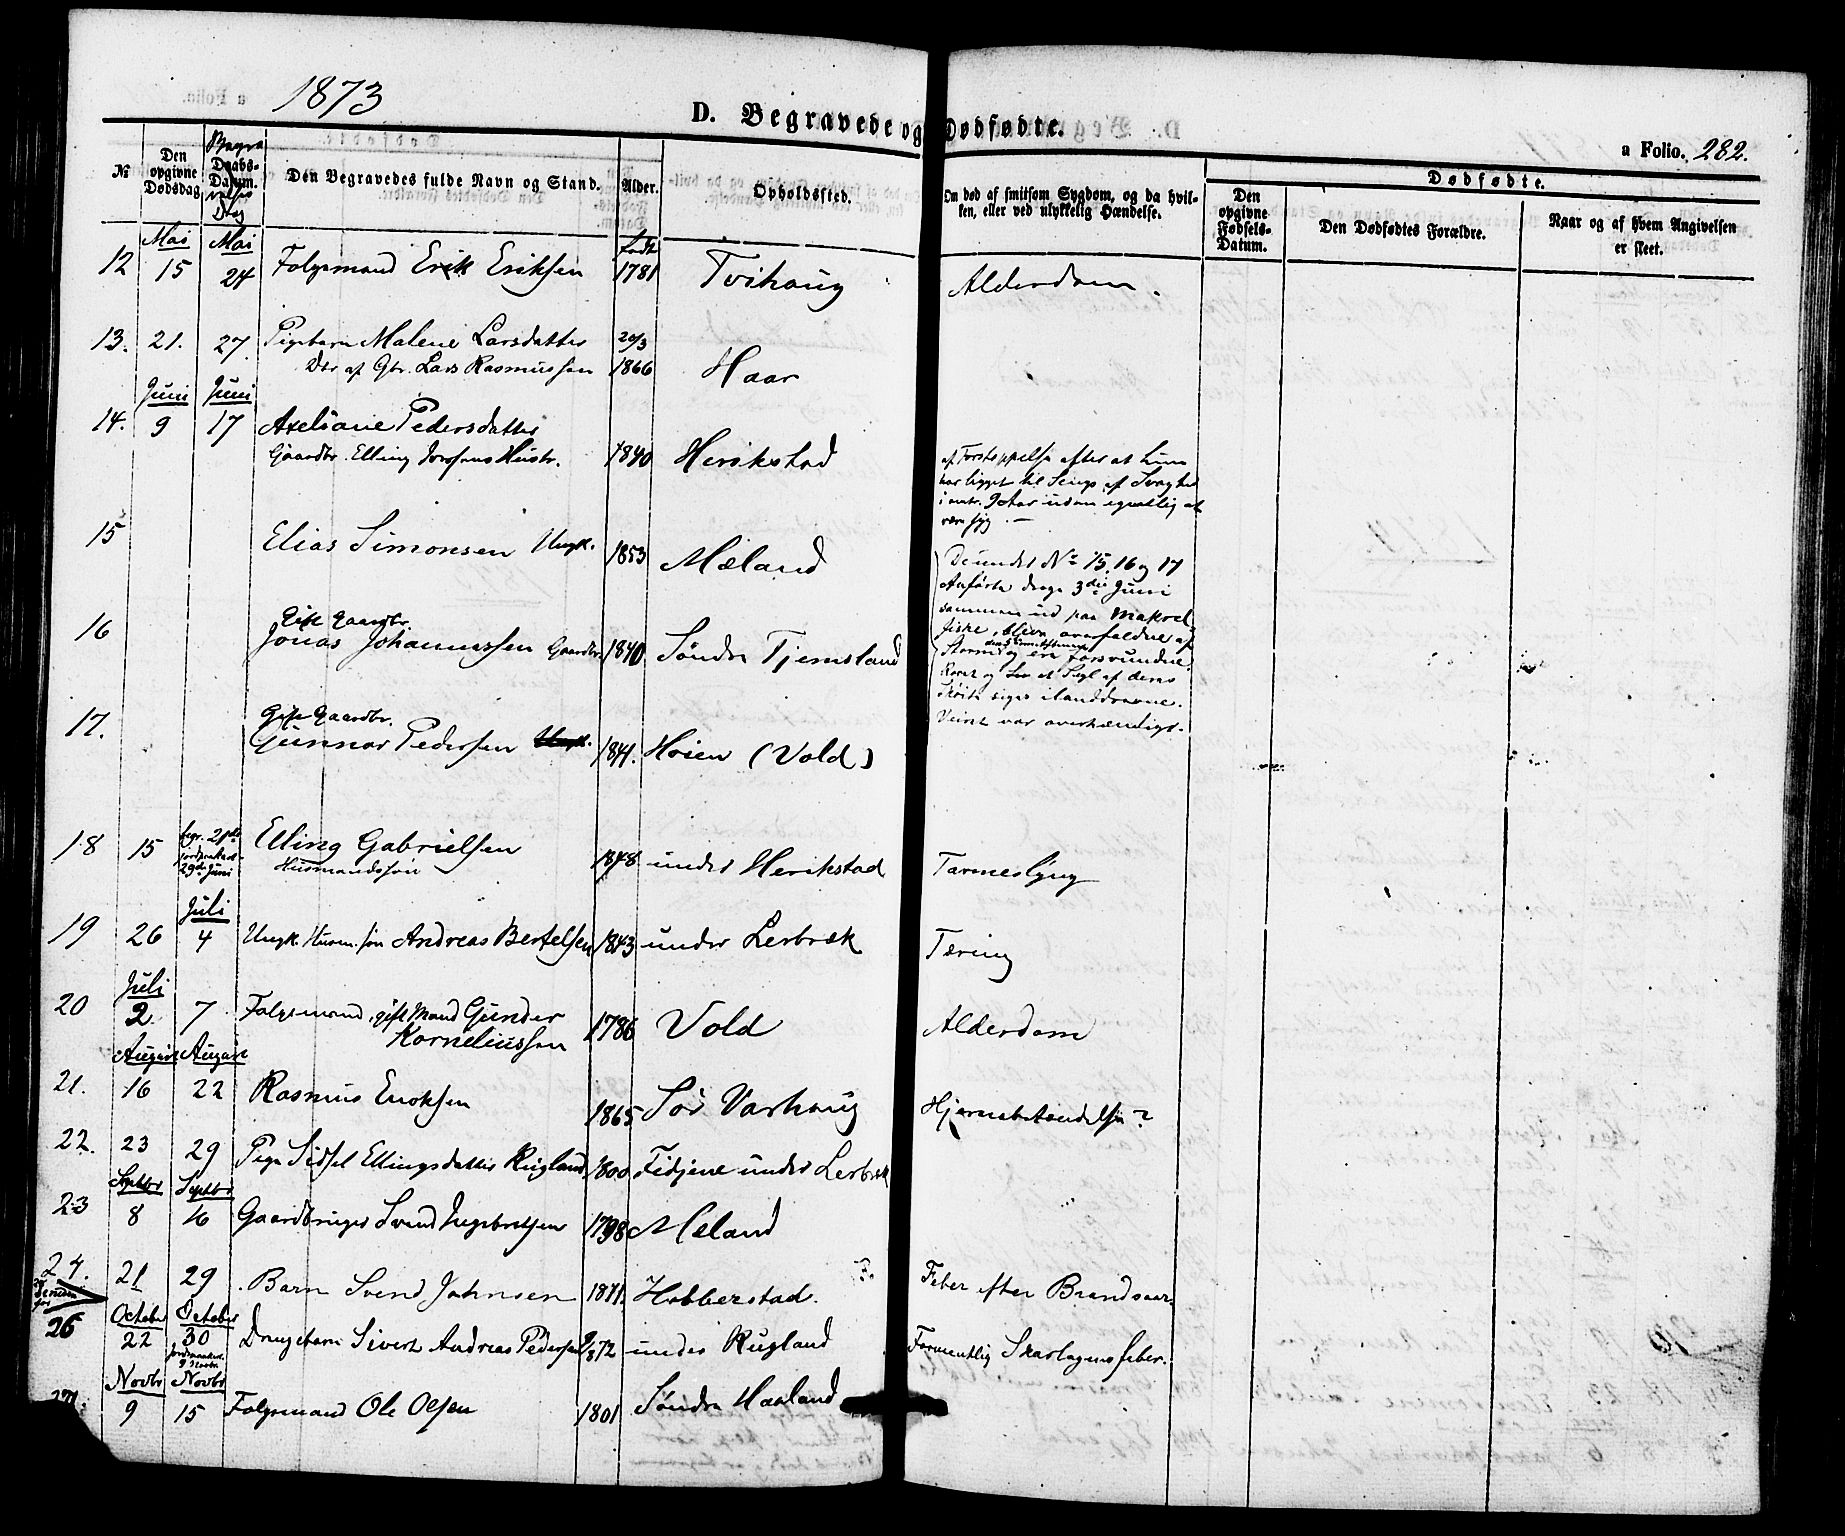 1873
D. Begravede og Dødfødte.
a Folio. 282.
Dødfødte.
№
Den opgivne Dødsdag
Daabs-Datum.
Den Begravedes fulde Navn og Stand.
Alder.
Opholdssted.
Om død af smitsom Sygdom, og da hvilken, eller ved ulykkelig Hændelse.
Den opgivne Fødsels-Datum.
Den Dødfødtes Forældre.
Naar og af hvem Angivelsen er skeet.
Mai Mai født
12 15 24 Folgemand Erik Eriksen 1781 Tvihoug Alderdom.
13. 21. 27. Pigebarn Malene Larsdatter 20/3
Dtr af Gbr. Lars Rasmussen 1866 Haar
Juni Juni
14. 9 17 Axeliane Pedersdatter
Gaardbr. Elling Hustr. 1840 Herikstad
af Forstoppelse efter at hun
har ligget til Sengs af Svaghed
i omtr. 9 Aar uden egentlig at
være syg.
15 Elias Simonsen Ungk. 1853 Mæland
De under No 15, 16 og 17
Anførte droge 3die Juni
sammen ud paa Makrel
fiske, bleve overfaldne af
Storm og ere forsvundne.
Roret og Seil af deres
Skøite siges ilanddrevne.
Veiret var overhændigt.
16 Gift Gaardbr.
Jonas Johannessen Gaardbr. 1840 Søndre Tjemsland
17. Gift Gaardbr.
Gunnar Pedersen 1841. Høien (Vold)
18 15 begr. 21de
jordpaakast
29de Juni
Elling Gabrielsen
Husmandssøn 1848. under Herikstad Tarmeslyng
Juli
19 26 4 Ungk. Husm. søn Andreas Bertelsen 1843 under Lerbræk Tæring
Juli
20 2. 7 Folgemand, gift Mand Gunder
Korneliussen 1786 Vold Alderdom
August August
21. 16 22 Rasmus Enoksen 1865 Sør Varhoug Hjernebetændelse?
22. 23 29 Pige Sidsel Ellingsdatter Rugland 1800 Fidjene under Lerbræk
Septbr Septbr
23 8 16 Gaardbruger Svend Ingebretsen 1798 Mæland
24. 21 29 Barn Svend Johnsen 1871. Hobberstad. Feber efter Brandsaar
October October
26 22 30 Drengebarn Sivert Andreas Pedersen 1872 under Rugland Formentlig Skarlagensfeber.
Novbr Novbr
9 15 Folgemand Ole Olsen 1801 Søndre Haaland